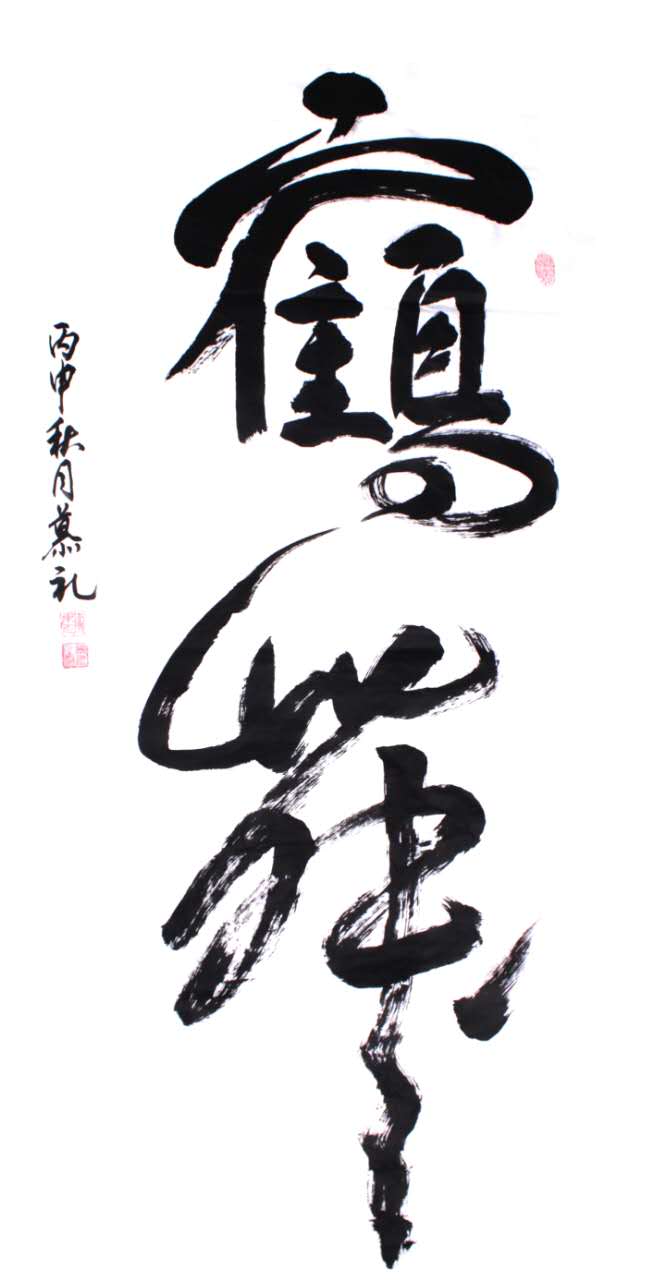 鶴舞
丙申秋月慕礼